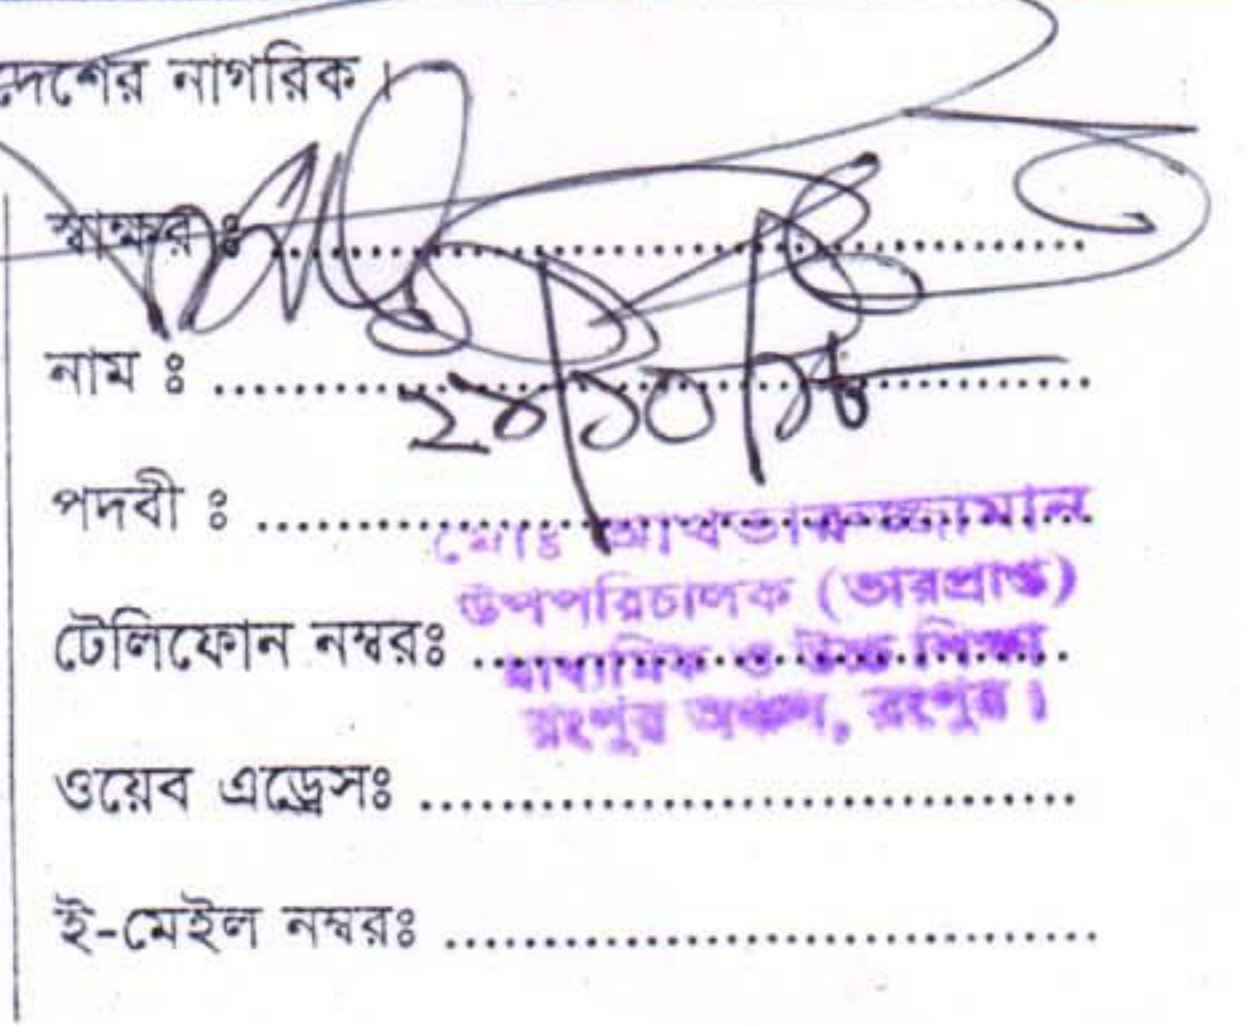 দেশের নাগরিক।
স্বাক্ষর ঃ ........................................
নাম ঃ ........................................
২৪/১০/১৮
পদবী ঃ ........................................
মোঃ আখতারুজ্জামান
উপপরিচালক (ভারপ্রাপ্ত)
টেলিফোন নম্বরঃ ........................................
মাধ্যমিক ও উচ্চ শিক্ষা
রংপুর অঞ্চল, রংপুর।
ওয়েব এড্রেসঃ ........................................
ই-মেইল নম্বরঃ ........................................